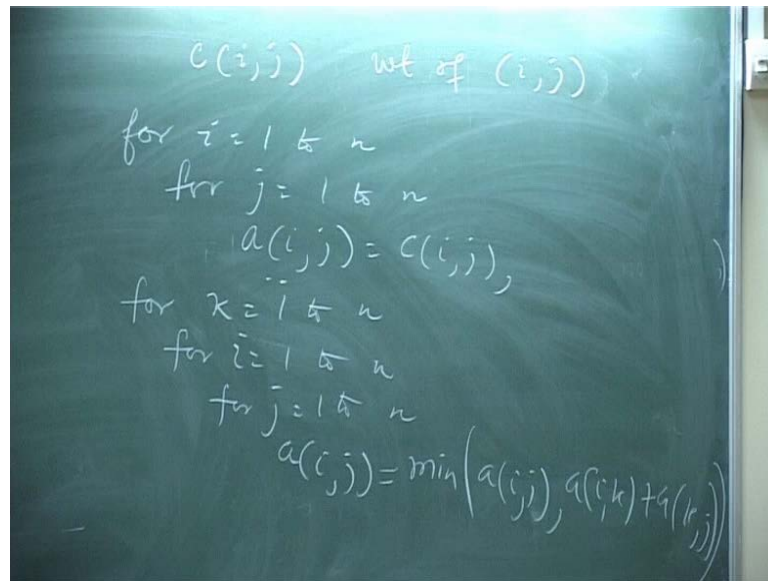 c(i,j) wt of (i,j)
for i = 1 to n
for j = 1 to n
a(i,j) = c(i,j),
for k = 1 to n
for i = 1 to n
for j = 1 to n
a(i,j) = min(a(i,j), a(i,k) + a(k,j))